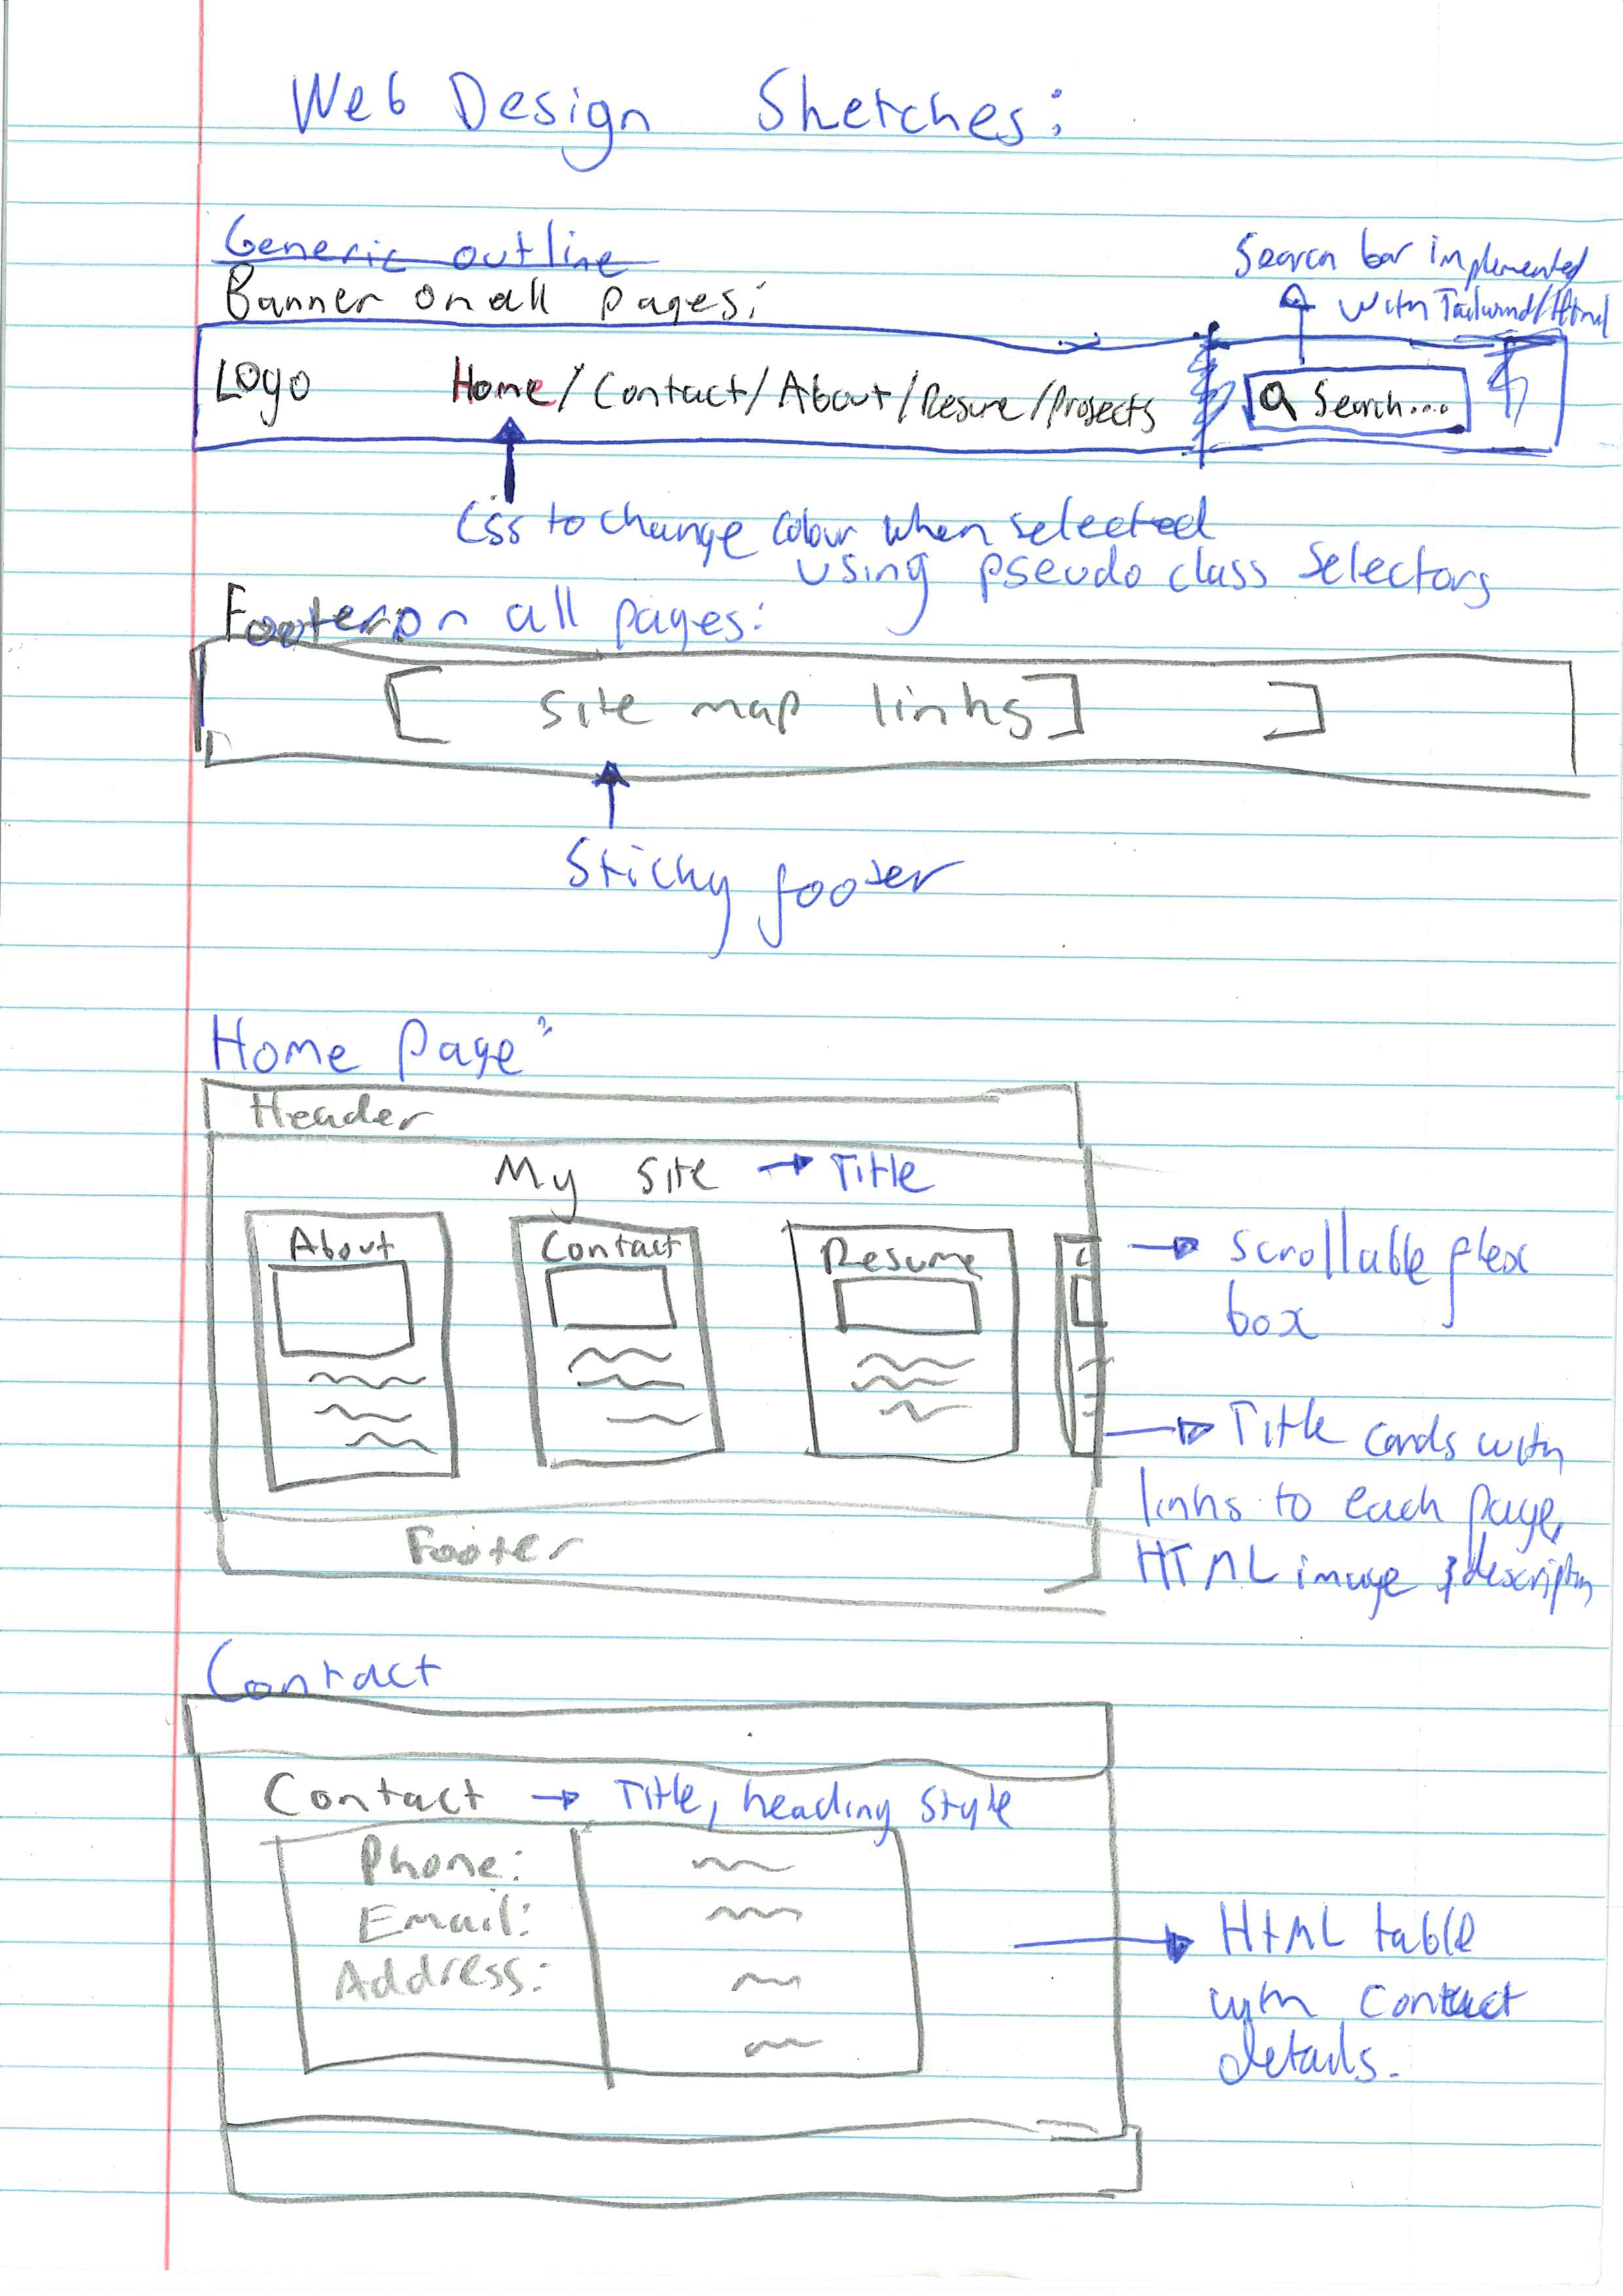 Web Design Sketches:
Generic outline
Banner on all pages:
Search bar implemented
with Tailwind/Html
Logo Home/Contact/About/Resume/Projects Search...
Css to change colour when selected
using pseudo class selectors
Footer on all pages:
[ site map links] ]
Sticky footer
Home Page:
Header
My Site → Title
About Contact Resume
→ scrollable flex
box
→ Title cards with
links to each page,
HTML image & description
Footer
Contact
Contact → Title, heading style
Phone:
Email:
Address:
→ HTML table
with contact
details.